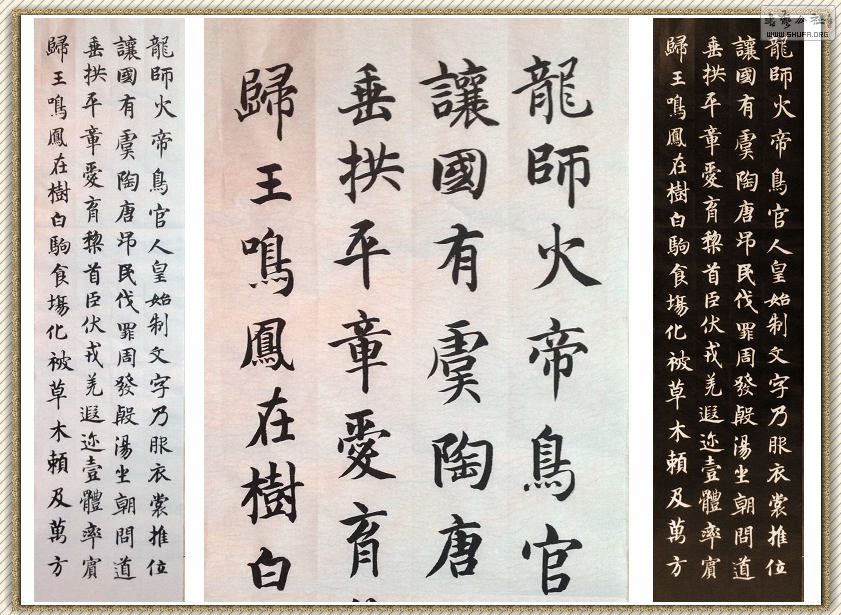 龍師火帝鳥官人皇始制文字乃服衣裳推位
讓國有虞陶唐吊民伐罪周發殷湯坐朝問道
垂拱平章愛育黎首臣伏戎羌遐迩壹體率賓
歸王鳴鳳在樹白駒食塲化被草木賴及萬方
龍師火帝鳥官
讓國有虞陶唐
垂拱平章愛育
歸王鳴鳳在樹白
龍師火帝鳥官人皇始制文字乃服衣裳推位
讓國有虞陶唐吊民伐罪周發殷湯坐朝問道
垂拱平章愛育黎首臣伏戎羌遐迩壹體率賓
歸王鳴鳳在樹白駒食塲化被草木賴及萬方
WWW.SHUFA.ORG